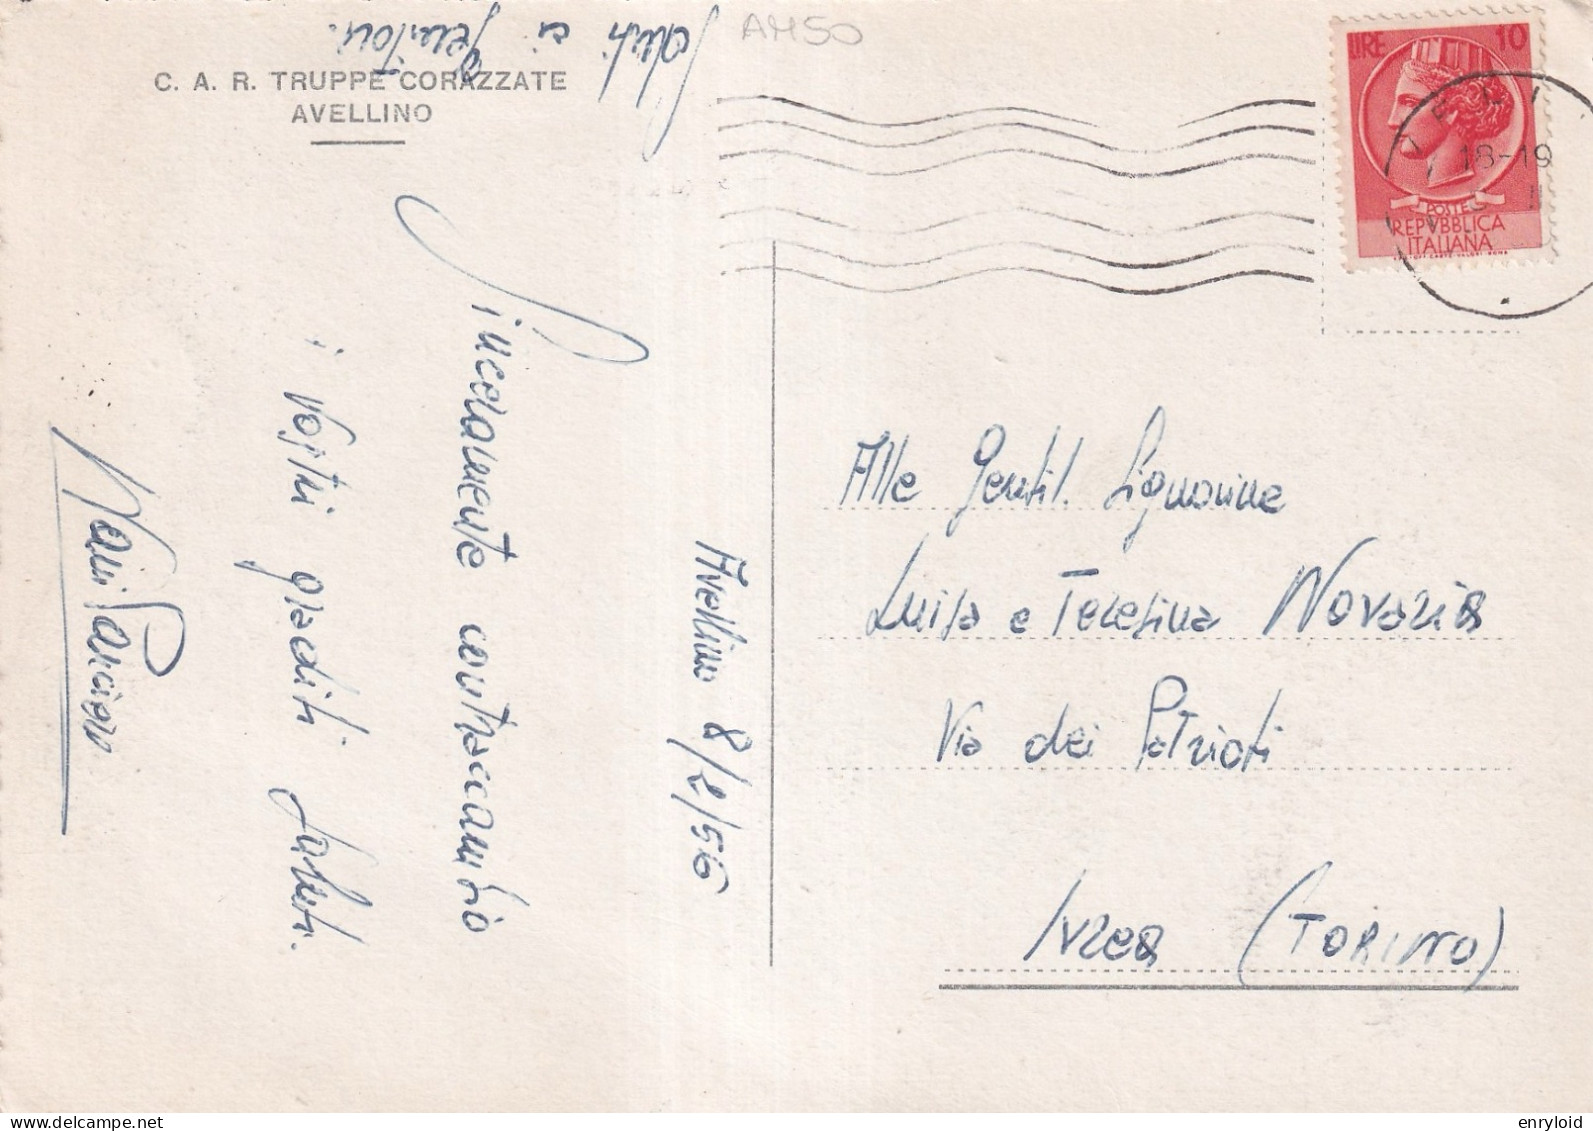 Saluti ai
genitori.
AM50
C. A. R. TRUPPE CORAZZATE
AVELLINO
Sinceramente contraccambio
i vostri graditi saluti.
Avellino 8/2/56
LIRE 10
POSTE
REPVBBLICA
ITALIANA
18-19
Alle Gentil. Signorine
Luisa e Teresina Novaria
Via dei Patrioti
Ivrea (TORINO)
delcampe.net
enryloid